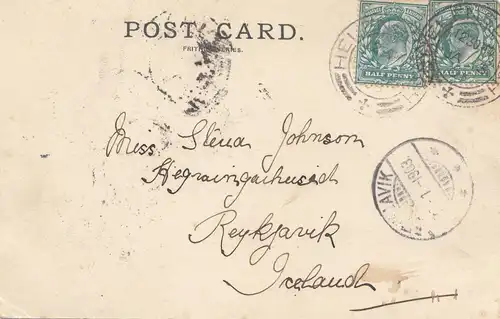 POST CARD.
FRITH'S SERIES.
HALF PENNY
HALF PENNY
HEL
AVIK
1903
Miss Stena Johnson
Hegningarhusid
Reykjavik
Iceland